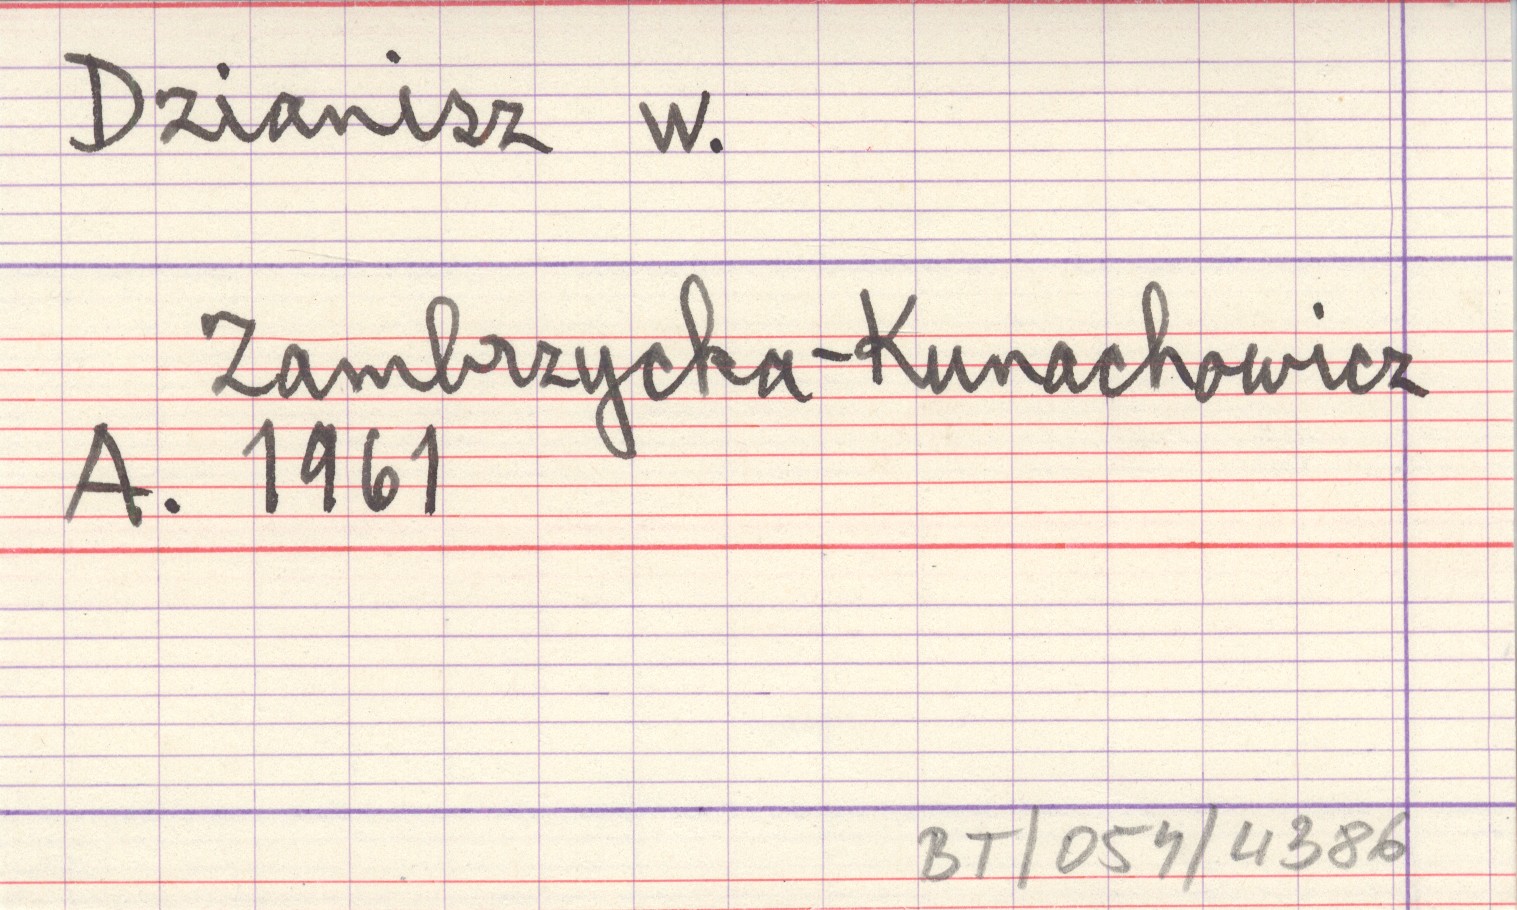 Dzianisz w.
Zambrzycka-Kunachowicz
A. 1961
BT/054/4386